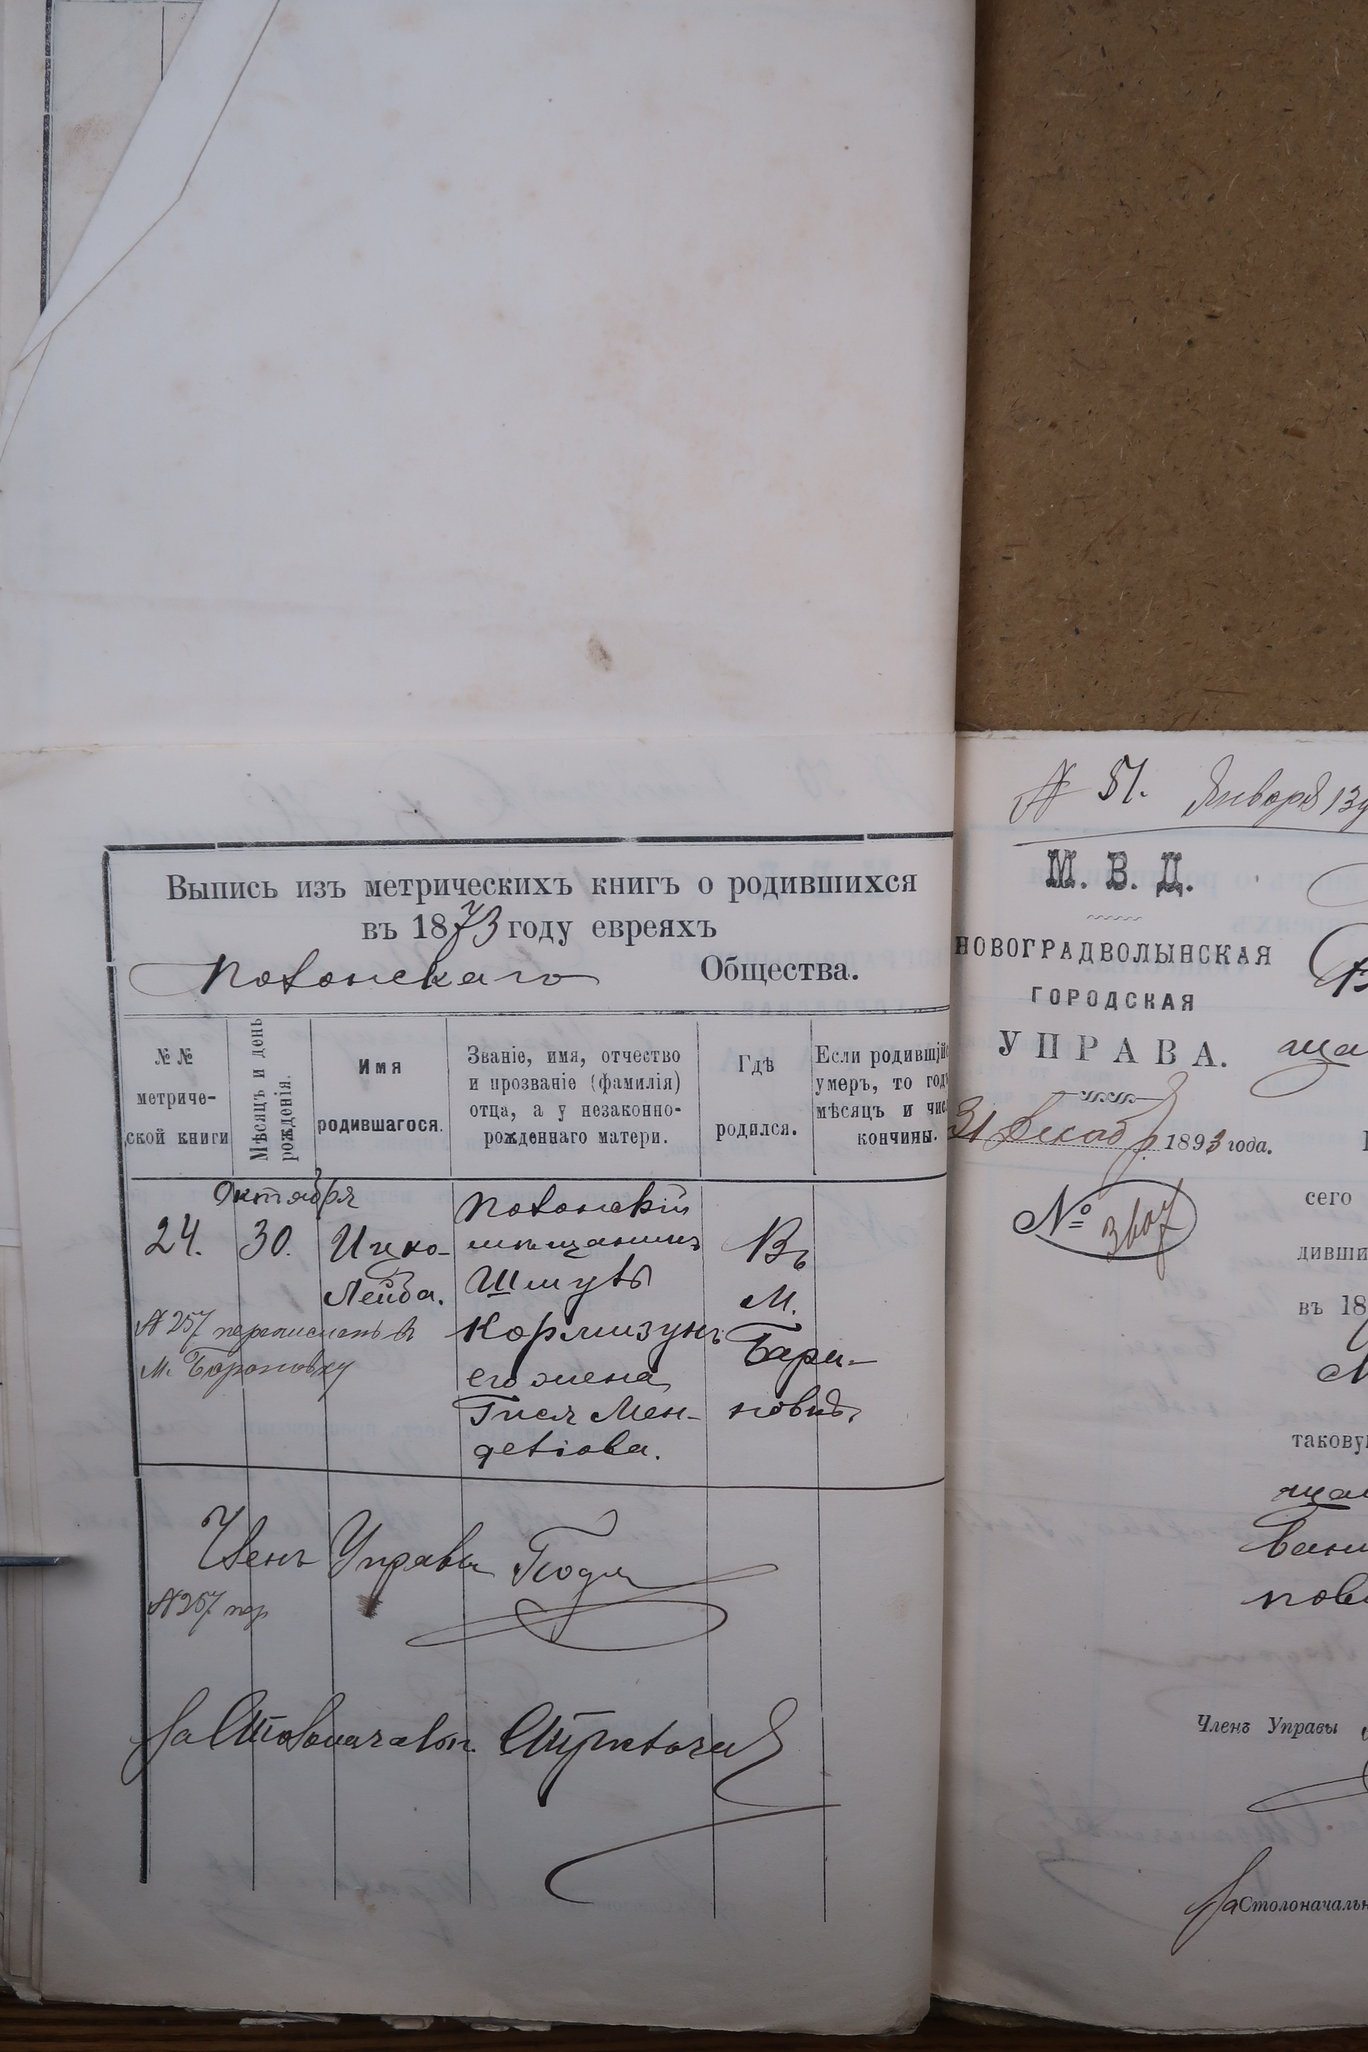 Выпись изъ метрическихъ книгъ о родившихся
въ 1873 году евреяхъ
Полонскаго Общества.
№№ метриче-ской книги
Мѣсяцъ и день рожденія.
Имя родившагося.
Званіе, имя, отчество и прозваніе (фамилія) отца, а у незаконно-рожденнаго матери.
Гдѣ родился.
Если родившійс умеръ, то год мѣсяцъ и чис кончины.
Октября
24. 30. Ицко-
Лейба.
Полонскій
мѣщанинъ
Шмуль
Кормизунъ
его жена
Гися Мен-
делiова.
Въ
М.
Бара-
новкѣ.
№ 257 переписанъ в
м. Барановку
Членъ Управы
№ 257 пер
За Столоначальн.
№ 51. Января 13
М. В. Д.
НОВОГРАДВОЛЫНСКАЯ
ГОРОДСКАЯ
УПРАВА.
31 Декабр. 1893 года.
№ 3607
сего
дивши
въ 18
М
такову
щан
вани
нов
Членъ Управы
За Столоначальн